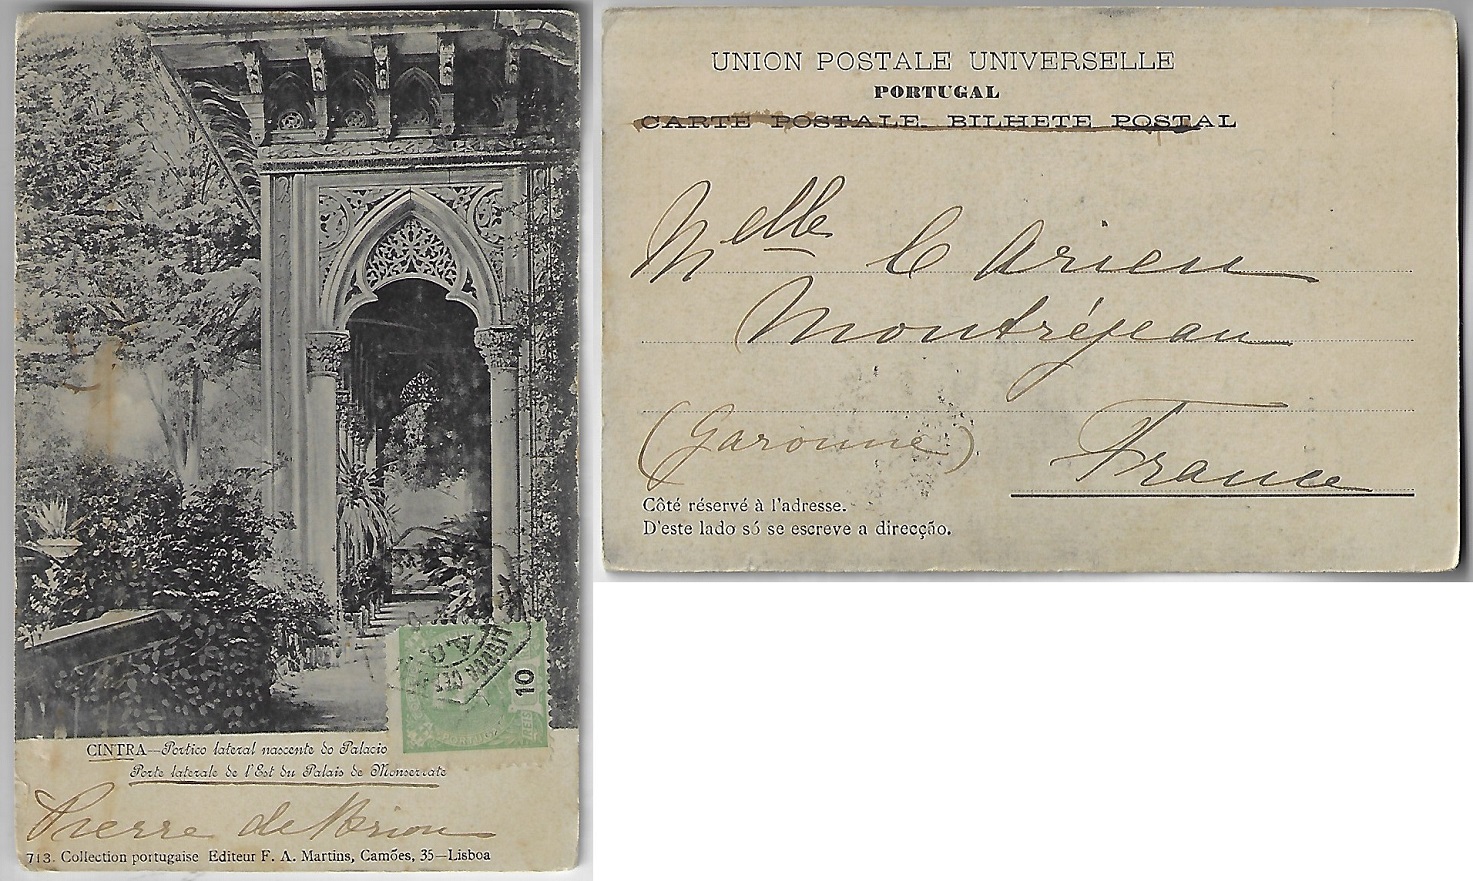 CINTRA—Portico lateral nascente do Palacio
Porte laterale de l'Est du Palais de Monserrate
Pierre de
713. Collection portugaise Editeur F. A. Martins, Camões, 35—Lisboa
10
REIS
PORTUGAL
UNION POSTALE UNIVERSELLE
PORTUGAL
CARTE POSTALE. BILHETE POSTAL
Melle
Montréjeau
(Garonne)
France
Côté réservé à l'adresse.
D'este lado só se escreve a direcção.